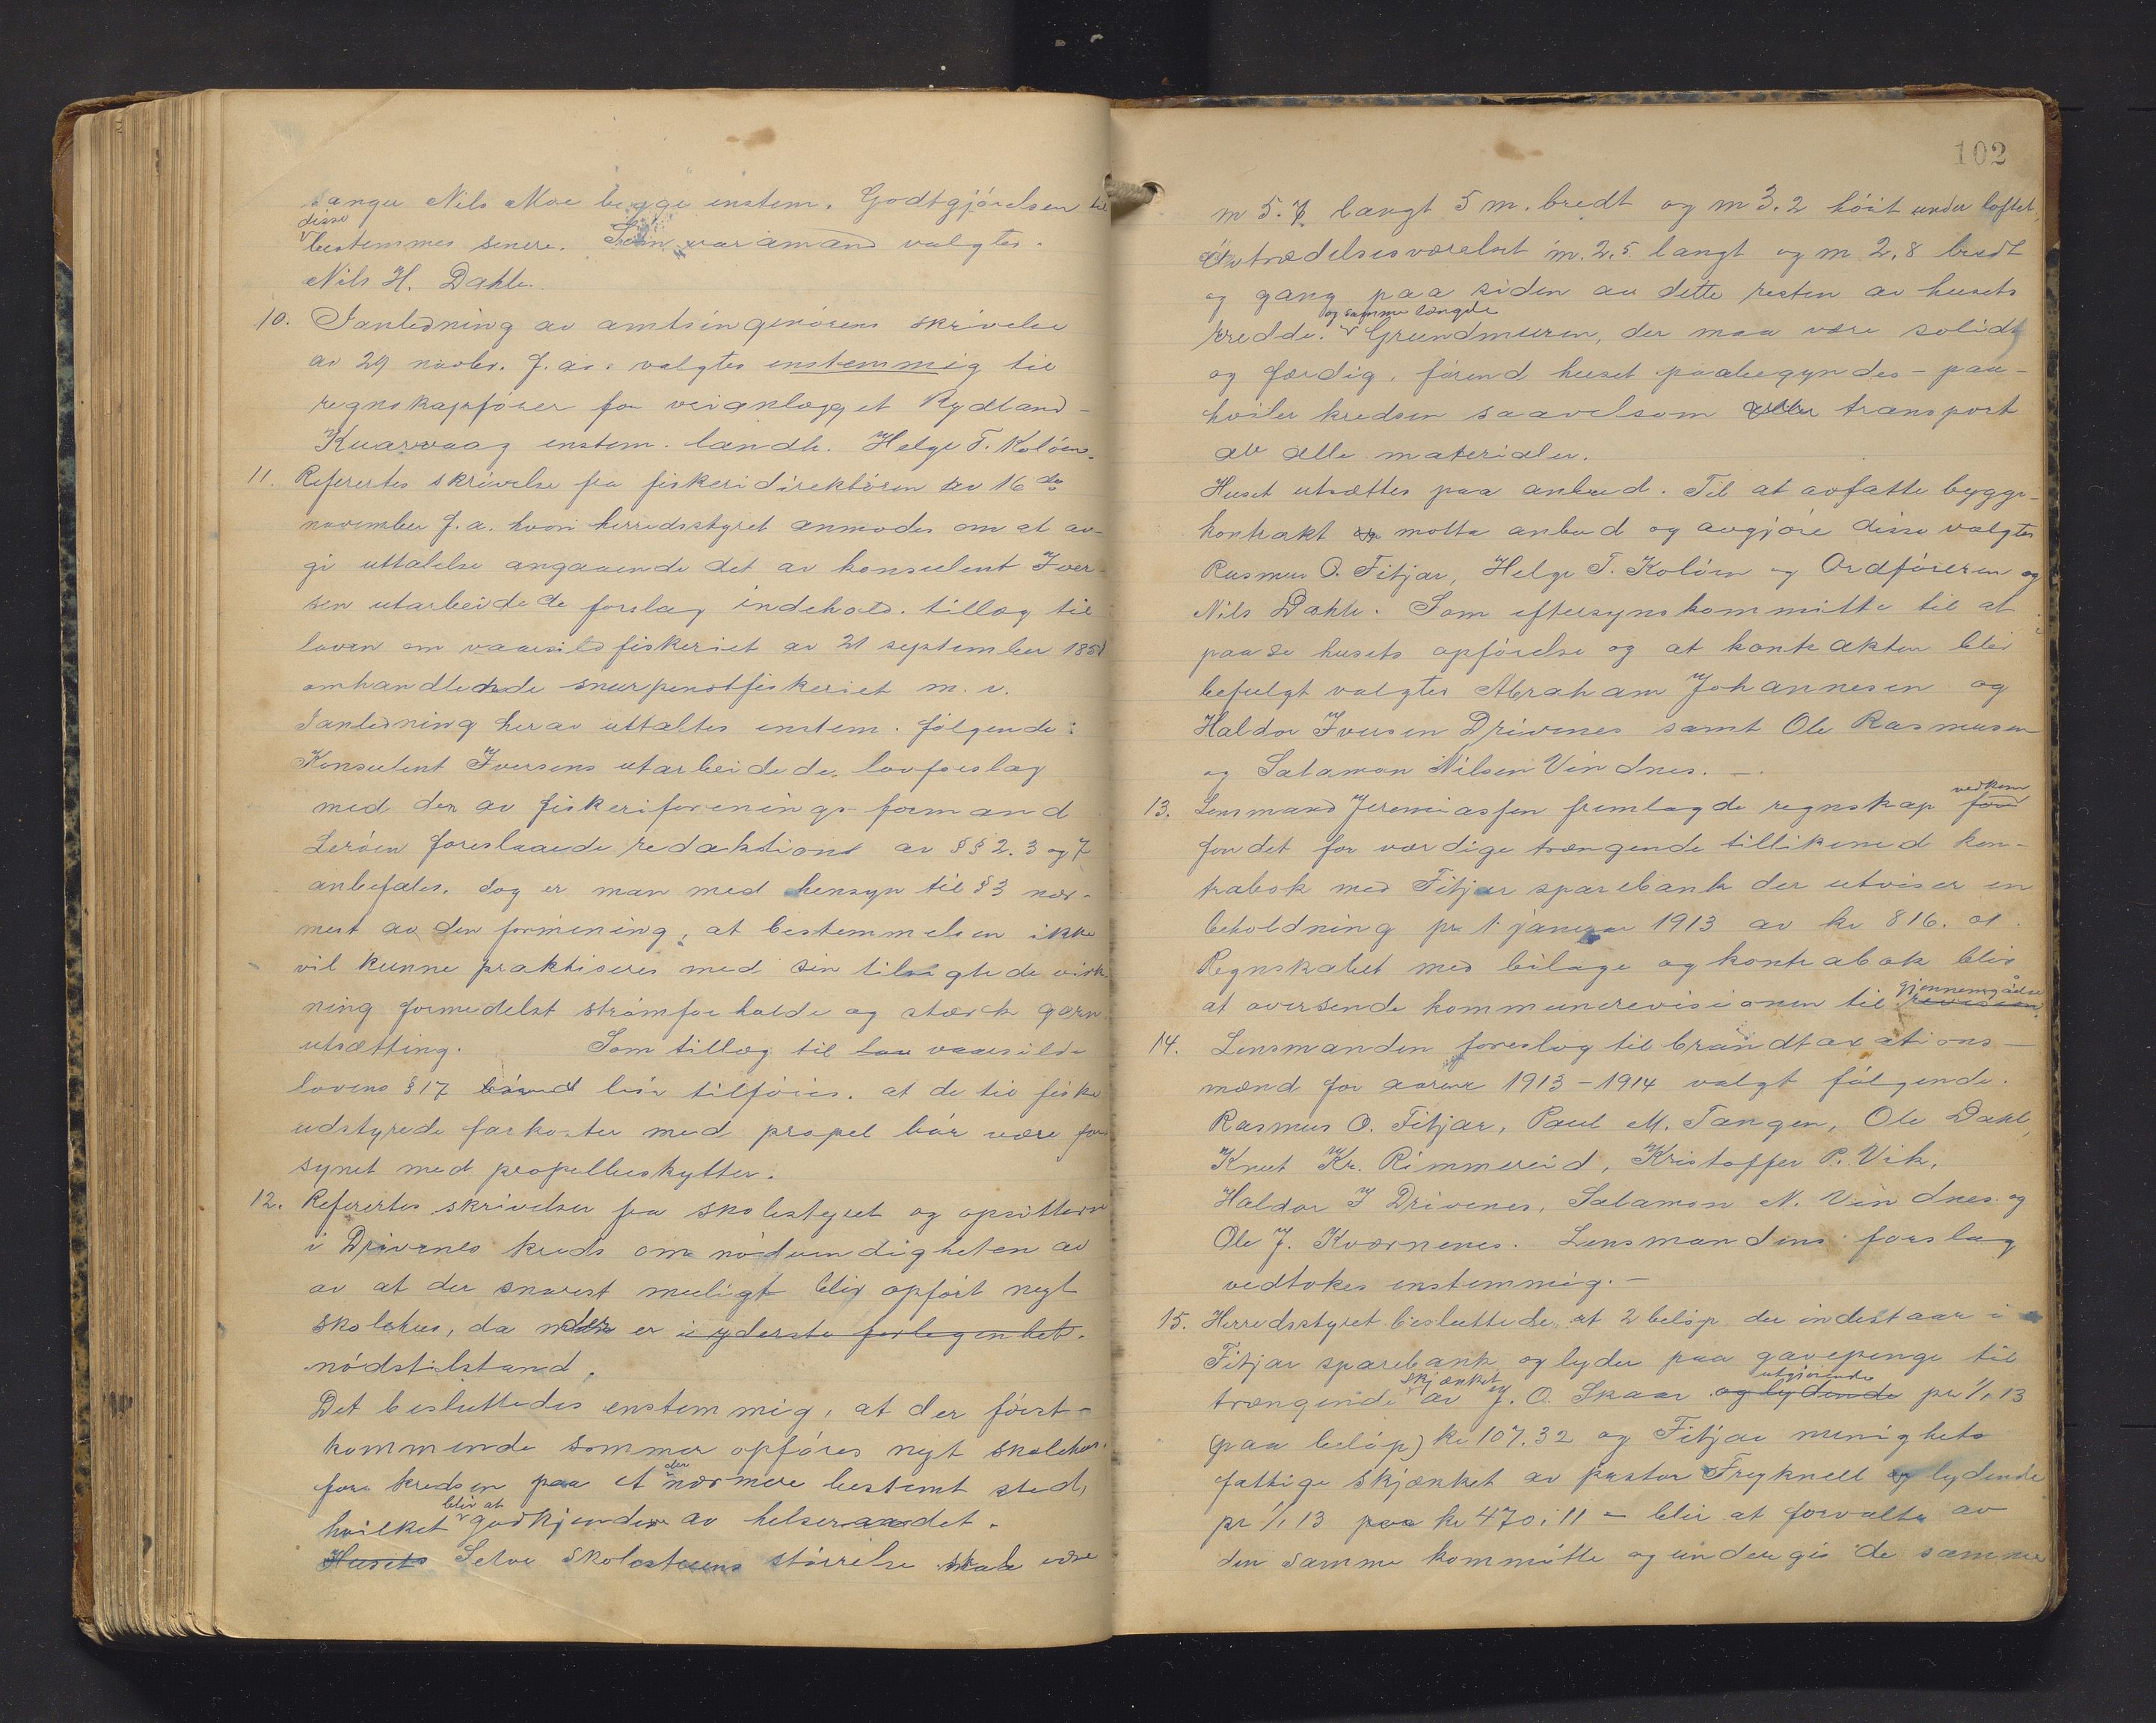 sanger Nils Moe begge enstem. Godtgjörelsen til
disse
bestemmes senere. Som varamand valgtes.
Nils H. Dahle.
10. Ianledning av amtsingeniörens skrivelse
av 29 novbr. f.a. valgtes enstemmig til
regnskapsförer for veianlægget Rydland-
Kvarvaag enstem. landh. Helge T. Kolöen.
11. Refertes skrivelse fra fiskeridirektören av 16 de
november f.a. hvori herredsstyret anmodes om at av-
gi uttalelse angaaende det av konsulent Iver-
sen utarbeidede forslag indehold. tillæg til
loven om vaarsildfiskeriet av 21 september 1851
omhandlende snurpenotfiskeriet m.v.
Ianledning herav uttaltes enstem. fölgende:
Konsulent Iversens utarbeidede lovforslag
med den av fiskeriforenings formand
Leröen foreslaaede redaktions av §§ 2. 3 og 7
anbefales, dog er man med hensyn til § 3 nær-
mest av den formening, at bestemmelsen ikke
vil kunne praktiseres med sin tilsigtede virk
ning formedelst strömforholde og stærk garn
utsætting. Som tillæg til lov vaarsilds
lovens § 17 bör tilföies. at de til fiske
udstyrede farkoster med propel bör være for
synet med propelbeskytter.
12. Refertes skrivelser fra skolestyret og opsittere
i Drivenes kreds om nödvendigheten av
av at der snarest muligt blir opfört nyt
skolehus, da der er i yderste forlegenhet.
nödstilstand.
Det besluttedes enstemmig, at der först-
kommende sommer opföres nyt skolehus
for kredsen paa et nærmere bestemt sted,
der
hvilket godkjendes av helseraadet.
blir at
Husets Selve skolestuens störrelse skal være
102
m 5.7 langt 5 m. bredt og m 3.2 höit under loftet,
Avtrædelsesværelset m. 2.5 langt og m 2,8 bredt
og gang paa siden av dette resten av husets
og samme længde
bredde. Grundmuren, der maa være solidt
og færdig, förend huset paabegyndes - paa-
hviler kredsen saavelsom transport
av alle materialer.
Huset utsættes paa anbud. Til at avfatte bygge-
kontrakt motta anbud og avgjöre disse valgtes
Rasmus O. Fitjar, Helge T. Kolöen og Ordföreren og
Nils Dahle. Som eftersynskommitte til at
paase husets opförelse og at kontrakten blir
befulgt valgtes Abraham Johannesen og
Haldor Iversen Drivenes samt Ole Rasmusen
og Salamon Nilsen Vindnes. -
vedkom
13. Lensmand Jeremiassen fremlagde regnskap for
fondet for værdige trængende tillikemed kon-
trabok med Fitjar sparebank der utviser en
beholdning pr 1 januar 1913 av kr 816. 01.
Regnskabet med bilage og kontrabok blir
gjennemgåelse
at oversende kommunerevisionen til revision.
14. Lensmanden foreslog til brandtaxations-
mænd for aarene 1913-1914 valgt fölgende.
Rasmus O. Fitjar, Paul M. Tangen, Ole Dahl,
Knut Kr. Rimmereid, Kristoffer P. Vik,
Haldor I Drivenes, Salamon N. Vindnes og
Ole J. Kværnenes. Lensmandens forslag
vedtokes enstemmig. -
15. Herredsstyret besluttede, at 2 belöp der indestaar i
Fitjar sparebank og lyder paa gavepenge til
skjænket utgjörende
trængende av J. O. Skaar og lydende pr 1/1 13
(paa belöp) kr 107.32 og Fitjar menighets
fattige skjænket av pastor Freyknell og lydende
pr 1/1 13 paa kr 470,11 - blir at forvalte av
den samme kommitte og undergis de samme